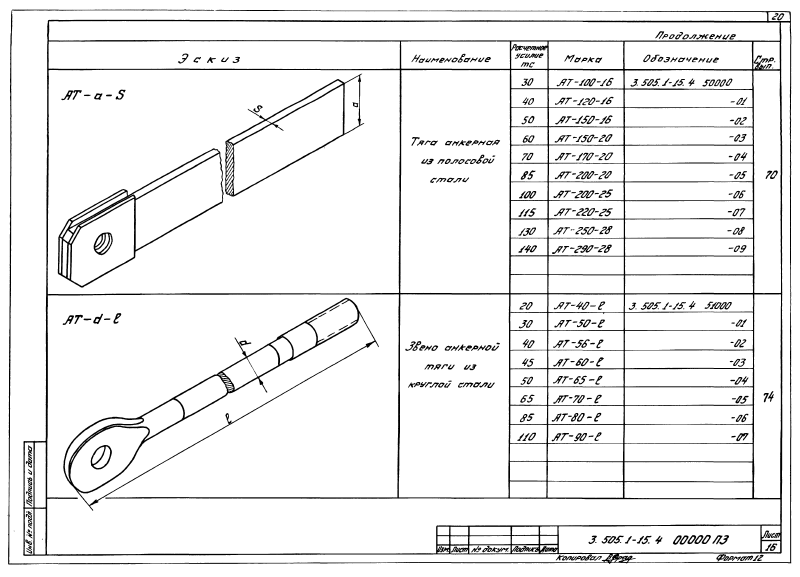 20
Продолжение
Эскиз Наименование Расчетное усилие тс Марка Обозначение Стр. вып.
АТ-а-S
S
а
Тяга анкерная
из полосовой
стали
30 АТ-100-16 3.505.1-15.4 50000
40 АТ-120-16 -01
50 АТ-150-16 -02
60 АТ-150-20 -03
70 АТ-170-20 -04
85 АТ-200-20 -05 70
100 АТ-200-25 -06
115 АТ-220-25 -07
130 АТ-250-28 -08
140 АТ-290-28 -09
АТ-d-ℓ
d
ℓ
Звено анкерной
тяги из
круглой стали
20 АТ-40-ℓ 3.505.1-15.4 51000
30 АТ-50-ℓ -01
40 АТ-56-ℓ -02
45 АТ-60-ℓ -03
50 АТ-65-ℓ -04
65 АТ-70-ℓ -05 74
85 АТ-80-ℓ -06
110 АТ-90-ℓ -07
Инв. № подл. Подпись и дата
Изм. Лист № докум. Подпись Дата
3.505.1-15.4 00000 ПЗ
Лист
16
Копировал Формат 12